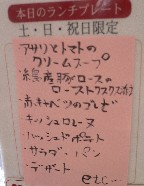 本日のランチプレート
土・日・祝日限定
アサリとトマトの
クリームスープ
豚肩ロースの
ロースト
赤キャベツのブレゼ
キッシュロレーヌ
ハッシュドポテト
サラダ・パン
デザート
etc…